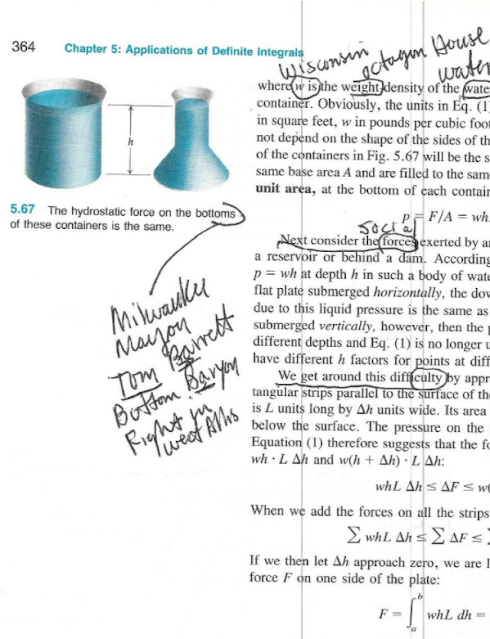 364 Chapter 5: Applications of Definite Integrals
Wisconsin
octagon House
water
where w is the weight density of the wate
container. Obviously, the units in Eq. (1
in square feet, w in pounds per cubic foot
not depend on the shape of the sides of th
of the containers in Fig. 5.67 will be the s
same base area A and are filled to the sam
unit area, at the bottom of each contain
h
5.67 The hydrostatic force on the bottoms
of these containers is the same.
p = F/A = wh.
social
Next consider the forces exerted by a
a reservoir or behind a dam. According
p = wh at depth h in such a body of wate
flat plate submerged horizontally, the dow
due to this liquid pressure is the same as
submerged vertically, however, then the p
different depths and Eq. (1) is no longer u
have different h factors for points at diff
We get around this difficulty by appr
tangular strips parallel to the surface of the
is L units long by Δh units wide. Its area
below the surface. The pressure on the
Equation (1) therefore suggests that the fo
wh · L Δh and w(h + Δh) · L Δh:
whL Δh ≤ ΔF ≤ w(
When we add the forces on all the strips
∑ whL Δh ≤ ∑ ΔF ≤ ∑
If we then let Δh approach zero, we are l
force F on one side of the plate:
F = ∫ₐᵇ whL dh =
Milwaukee
Mayor
Tom Barrett
Bottom Baryon
Right in
West Allis